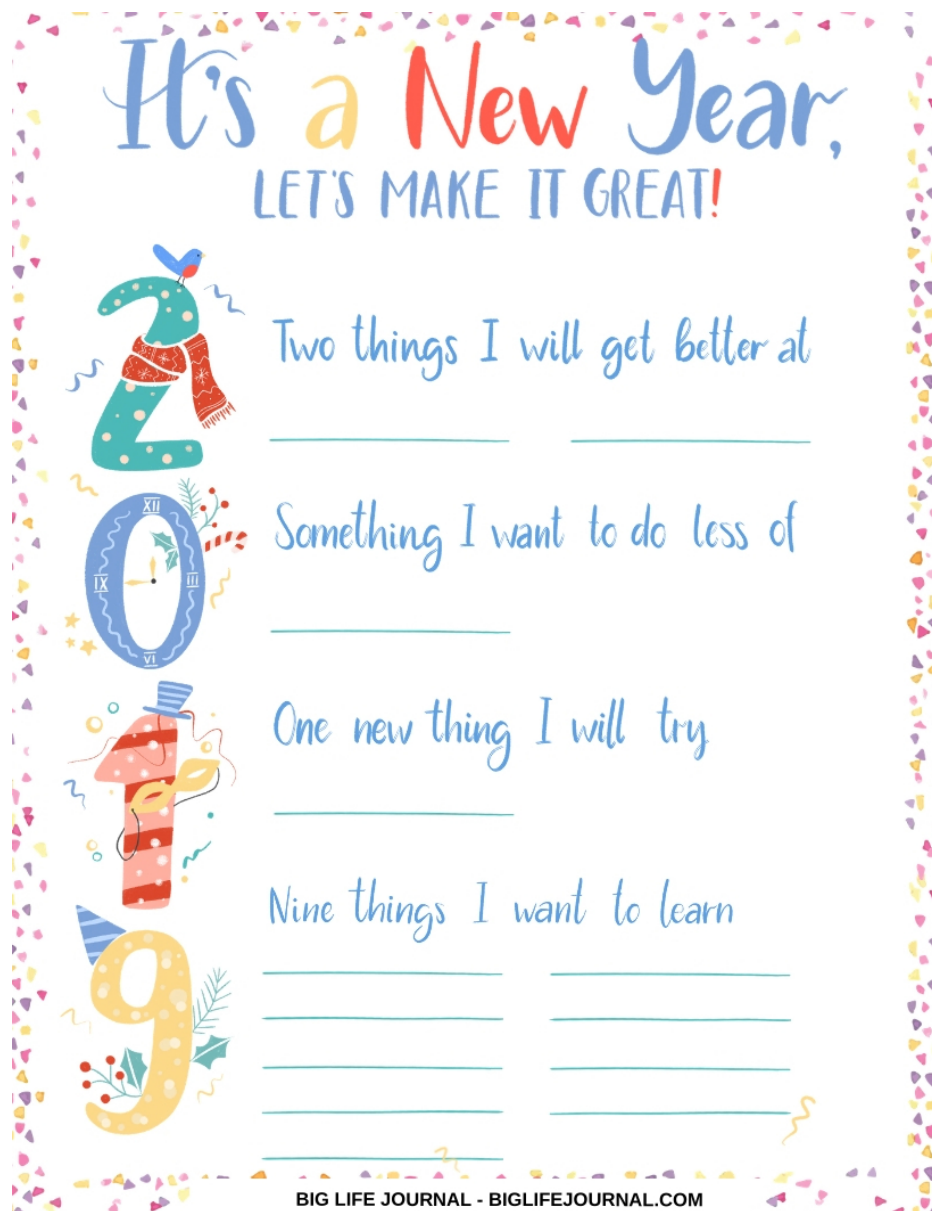 It's a New Year,
LET'S MAKE IT GREAT!
2
Two things I will get better at
0
XII
III
VI
IX
Something I want to do less of
1
One new thing I will try
9
Nine things I want to learn
BIG LIFE JOURNAL - BIGLIFEJOURNAL.COM